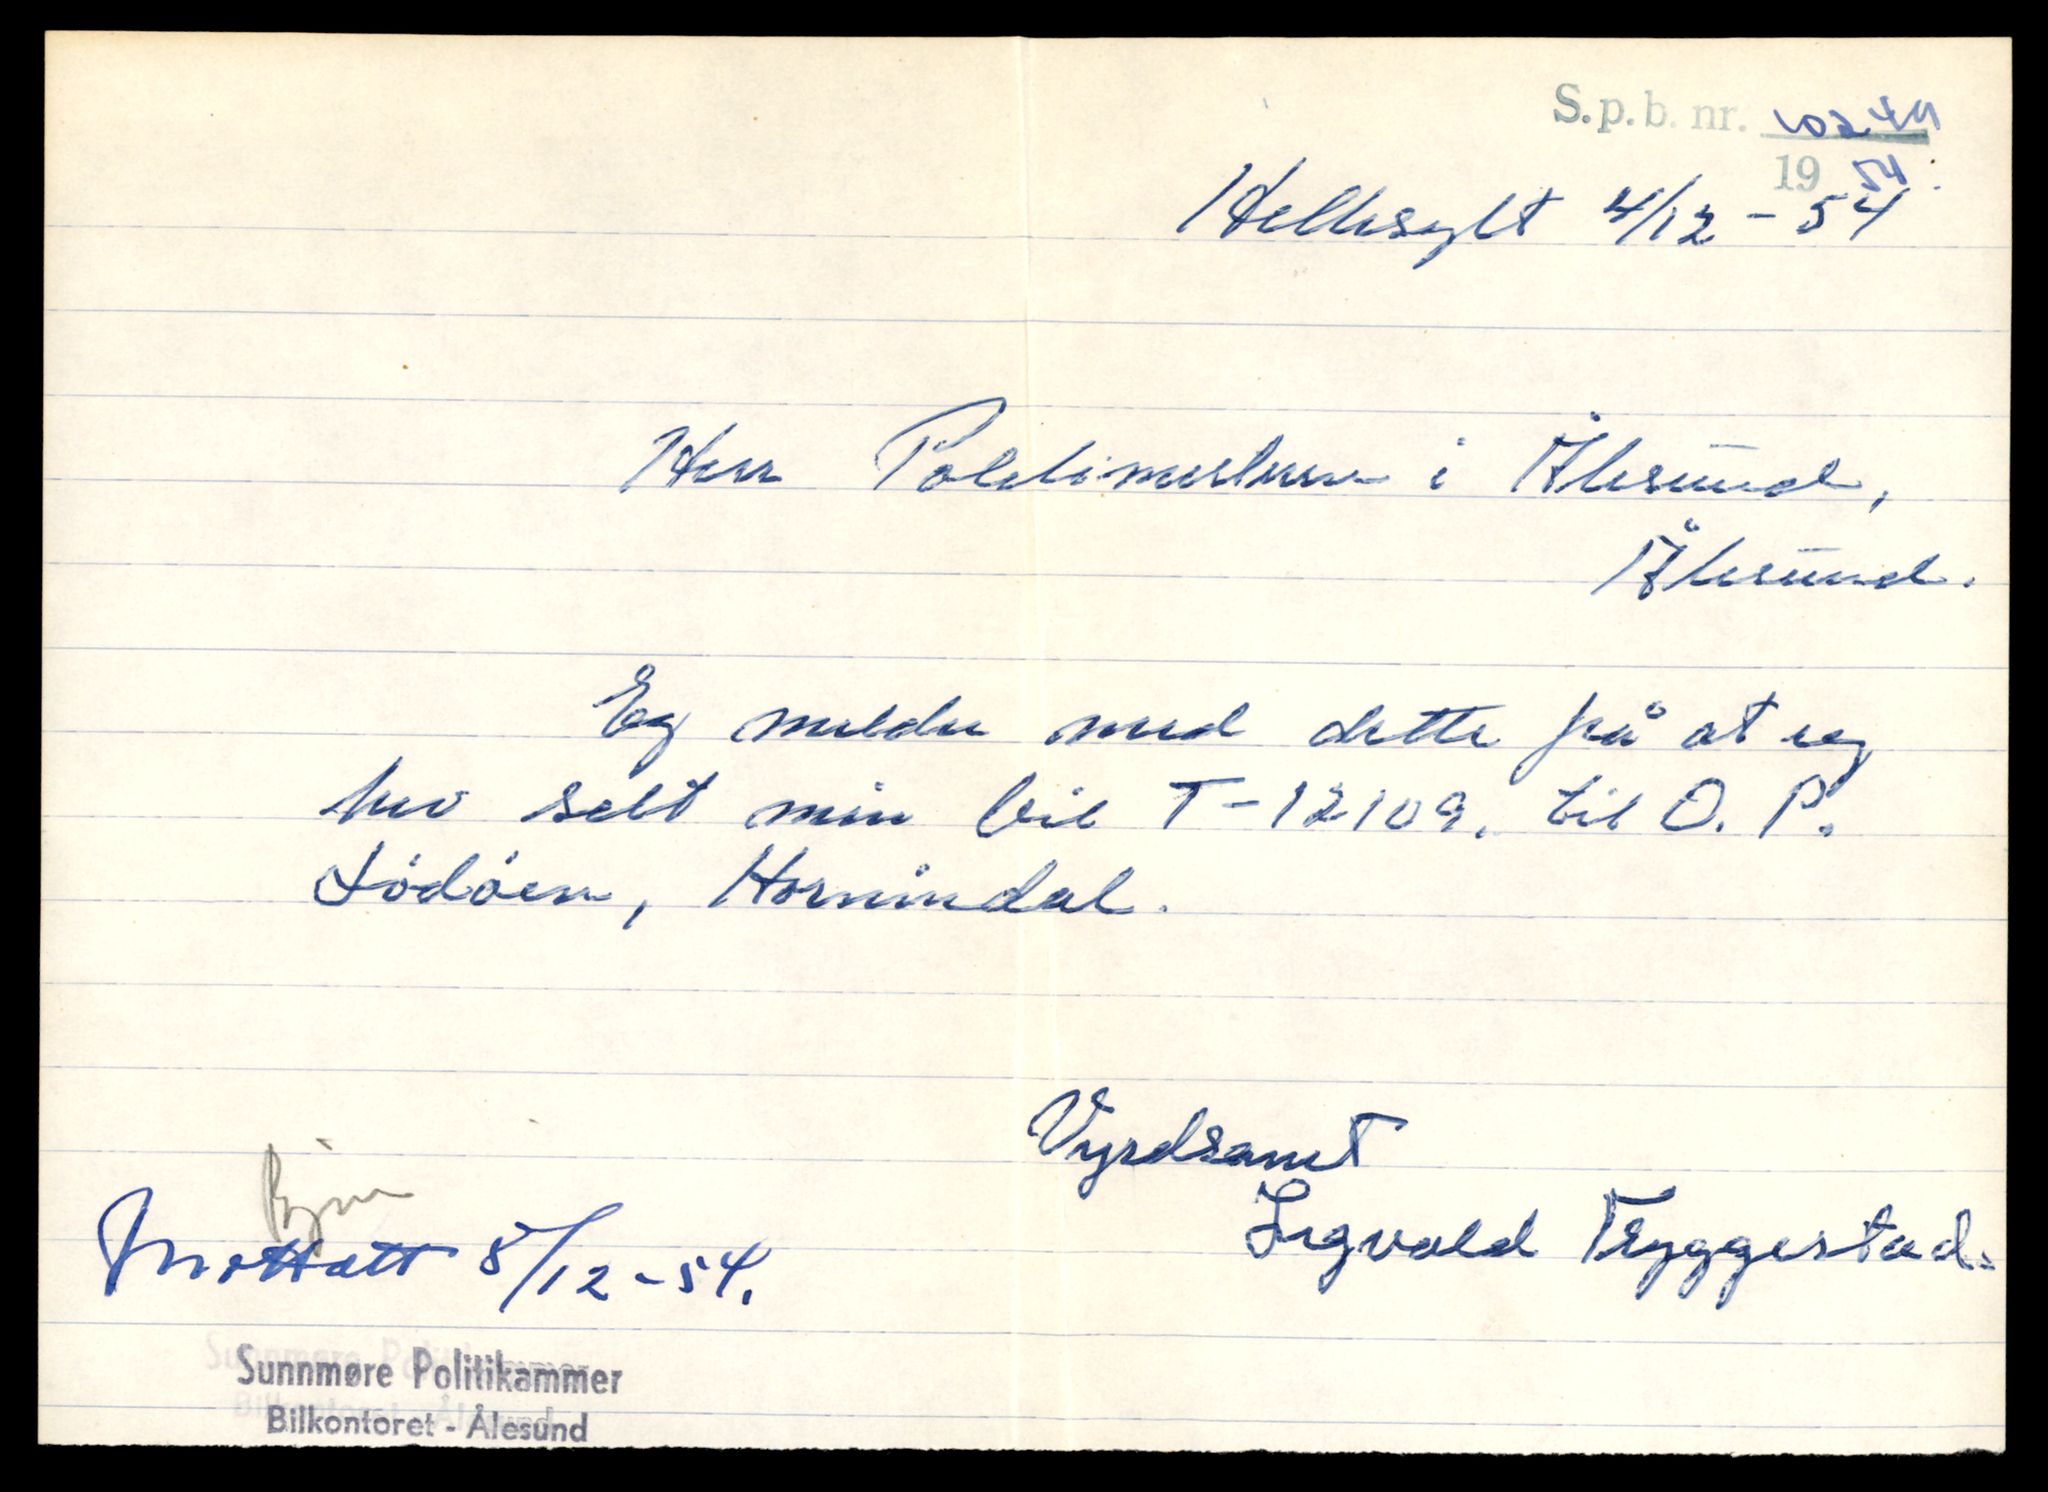 S.p.b. nr. 10249
19 54
Hellesylt 4/12 - 54
Herr Politimesteren i Ålesund,
Ålesund.
Eg melder med dette frå at eg
hev selt min bil T-12109. til O. P.
Lödöen, Hornindal.
Vyrdsamt
Ingvald Tryggestad.
Mottatt 8/12-54.
Sunnmøre Politikammer
Bilkontoret - Ålesund